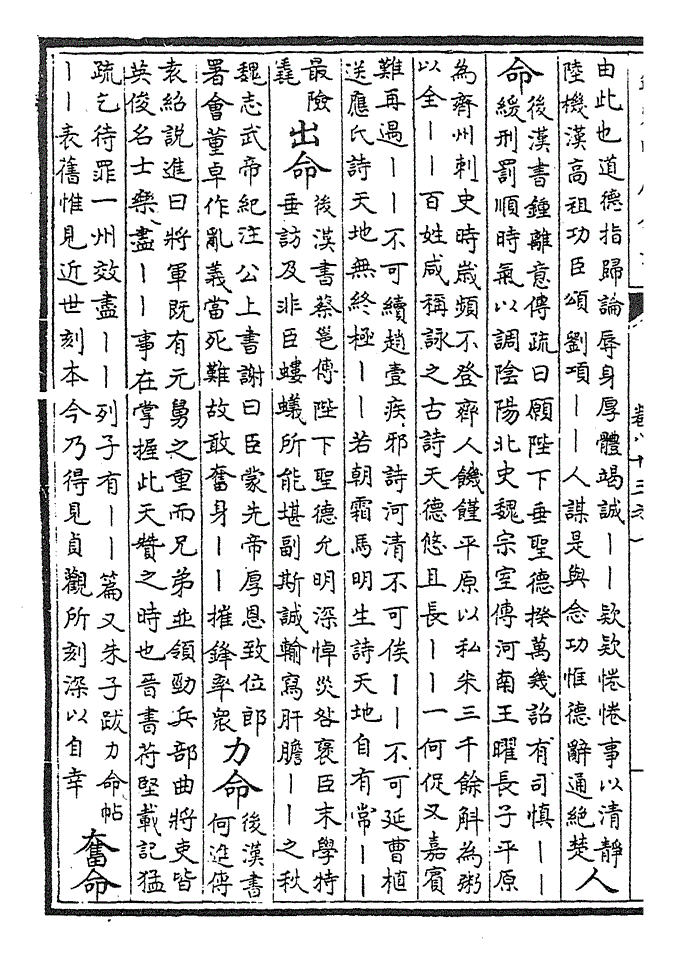 卷八十三之一
由此也道德指歸論辱身厚體竭誠丨丨欵欵惓惓事以清靜
陸機漢高祖功臣頌劉項丨丨人謀是與念功惟德辭通絕楚
人
命
後漢書鍾離意傳疏曰願陛下垂聖德揆萬幾詔有司慎丨丨
緩刑罰順時氣以調陰陽北史魏宗室傳河南王曜長子平原
為齊州刺史時歲頻不登齊人饑饉平原以私米三千餘斛為粥
以全丨丨百姓咸稱詠之古詩天德悠且長丨丨一何促又嘉賓
難再遇丨丨不可續趙壹疾邪詩河清不可俟丨丨不可延曹植
送應氏詩天地無終極丨丨若朝霜馬明生詩天地自有常丨丨
最險
出命
後漢書蔡邕傳陛下聖德允明深悼災咎褒臣末學特
垂訪及非臣螻蟻所能堪副斯誠輸寫肝膽丨丨之秋
魏志武帝紀注公上書謝曰臣蒙先帝厚恩致位郎
署會董卓作亂義當死難故敢奮身丨丨摧鋒率眾
力命
後漢書
何進傳
袁紹說進曰將軍既有元舅之重而兄弟並領勁兵部曲將吏皆
英俊名士樂盡丨丨事在掌握此天贊之時也晉書苻堅載記猛
疏乞待罪一州效盡丨丨列子有丨丨篇又朱子跋力命帖
丨丨表舊惟見近世刻本今乃得見貞觀所刻深以自幸
奮命